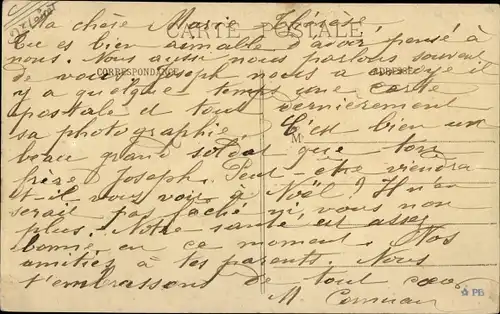 Ma chère Marie Thérèse,
CARTE POSTALE
Tu es bien aimable d'avoir pensé à
nous. Nous aussi nous parlons souvent
de vous. Joseph nous a envoyé il
CORRESPONDANCE
ADRESSE
y a quelque temps une carte
postale et tout dernièrement
sa photographie. C'est bien un
M
beau grand soldat que ton
frère Joseph. Peut-être viendra
t-il vous voir à Noël? Il n'en
serait pas fâché ni vous non
plus. Notre santé est assez
bonne en ce moment. Nos
amitiés à tes parents. Nous
t'embrassons de tout cœur
M.
PB